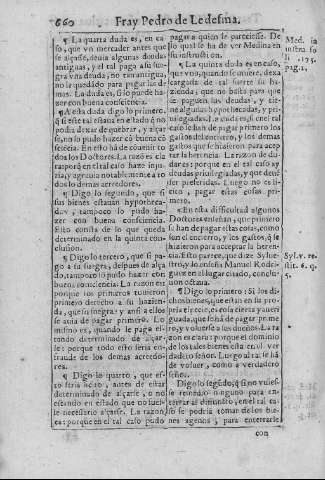 660 Fray Pedro de Ledesma.
¶ La quarta duda es, en ca-
so, que vn mercader antes que
se alçasse, deuia algunas deudas
antiguas, y el tal pago a su sue-
gra vna deuda, no tan antigua,
no le quedãdo para pagar las de
mas. La duda es, si lo puede ha-
zer con buena consciẽcia.
¶ A esta duda digo lo primero,
q̃ si este tal estaua en estado q̃ no
podia dexar de quebrar, y alçar
se, no lo pudo hazer cõ buena cõ
sciencia. En esto hã de conuenir to
dos los Doctores. La razõ es cla
ra: porq̃ en el tal caso haze inju-
ria, y agrauia notablemente a to
dos los demas acreedores.
¶ Digo lo segundo, que si
sus bienes estauan hypotheca-
dos, tampoco lo pudo ha-
zer con buena consciencia.
Esto consta de lo que queda
determinado en la quinta con-
clusion.
¶ Digo lo tercero, que si pa-
go a su suegra, despues de alça
do, tampoco lo pudo hazer con
buena consciencia. La razon es:
porque los primeros tuuieron
primero derecho a su hazien-
da, que su suegra y ansi a ellos
se auia de pagar primero. Lo
mismo es, quando le pago es-
tando determinado de alçar-
se: porque todo esto seria en
fraude de los demas acreedo-
res.
¶ Digo lo quarto, que es-
to seria licito, antes de estar
determinado de alçarse, o no
estando en estado que no fues-
se necessario alçarse. La razon
es: porque en el tal caso pudo
pagar a quien se pareciesse. De
lo qual se ha de ver Medina en
su instruction.
¶ La quinta duda es, en caso,
que vno, quando se muere, dexa
cargada de tal suerte su ha-
zienda, que no basta para que
se paguen las deudas, y cier-
tas deudas hypothecadas, y pri-
uilegiadas. La duda es, si en el tal
caso se han de pagar primero los
gastos del entierro, y los demas
gastos que se hizieron para acep
tar la herencia. La razon de du-
dar es: porque en el tal caso ay
deudas priuilegiadas, y que deuẽ
ser preferidas. Luego no es li-
cito, pagar estas cosas pri-
mero.
¶ En esta difficultad algunos
Doctores enseñan, que primero
se han de pagar estas cosas, como
son el entierro, y los gastos, q̃ se
hizieron para acceptar la heren-
cia. Esto parece, que dize Sylue-
stro, y lo enseña Manuel Rodri-
guez en el lugar citado, conclu-
sion octaua.
¶ Digo lo primero: Si los di-
chos bienes, que estan en su pro-
pria especie, o en cosa, y que fuerõ
guarda, que se ha de pagar prime
ro, y voluerse a sus dueños. La ra
zon es clara: porque el dominio
de los tales bienes esta en el ver
dadero señor. Luego al tal se hã
de voluer, como a verdadero
señor.
Digo lo segũdo, q̃ si no vuies-
se remedio ninguno para en-
terrar al difuncto, en el tal ca-
so se podria tomar de los bie-
nes agenos, para enterrarle
con
Med. in
instru. fo
li. 175.
pag. 2.
Sylv. re-
stit. 6. q.
5.